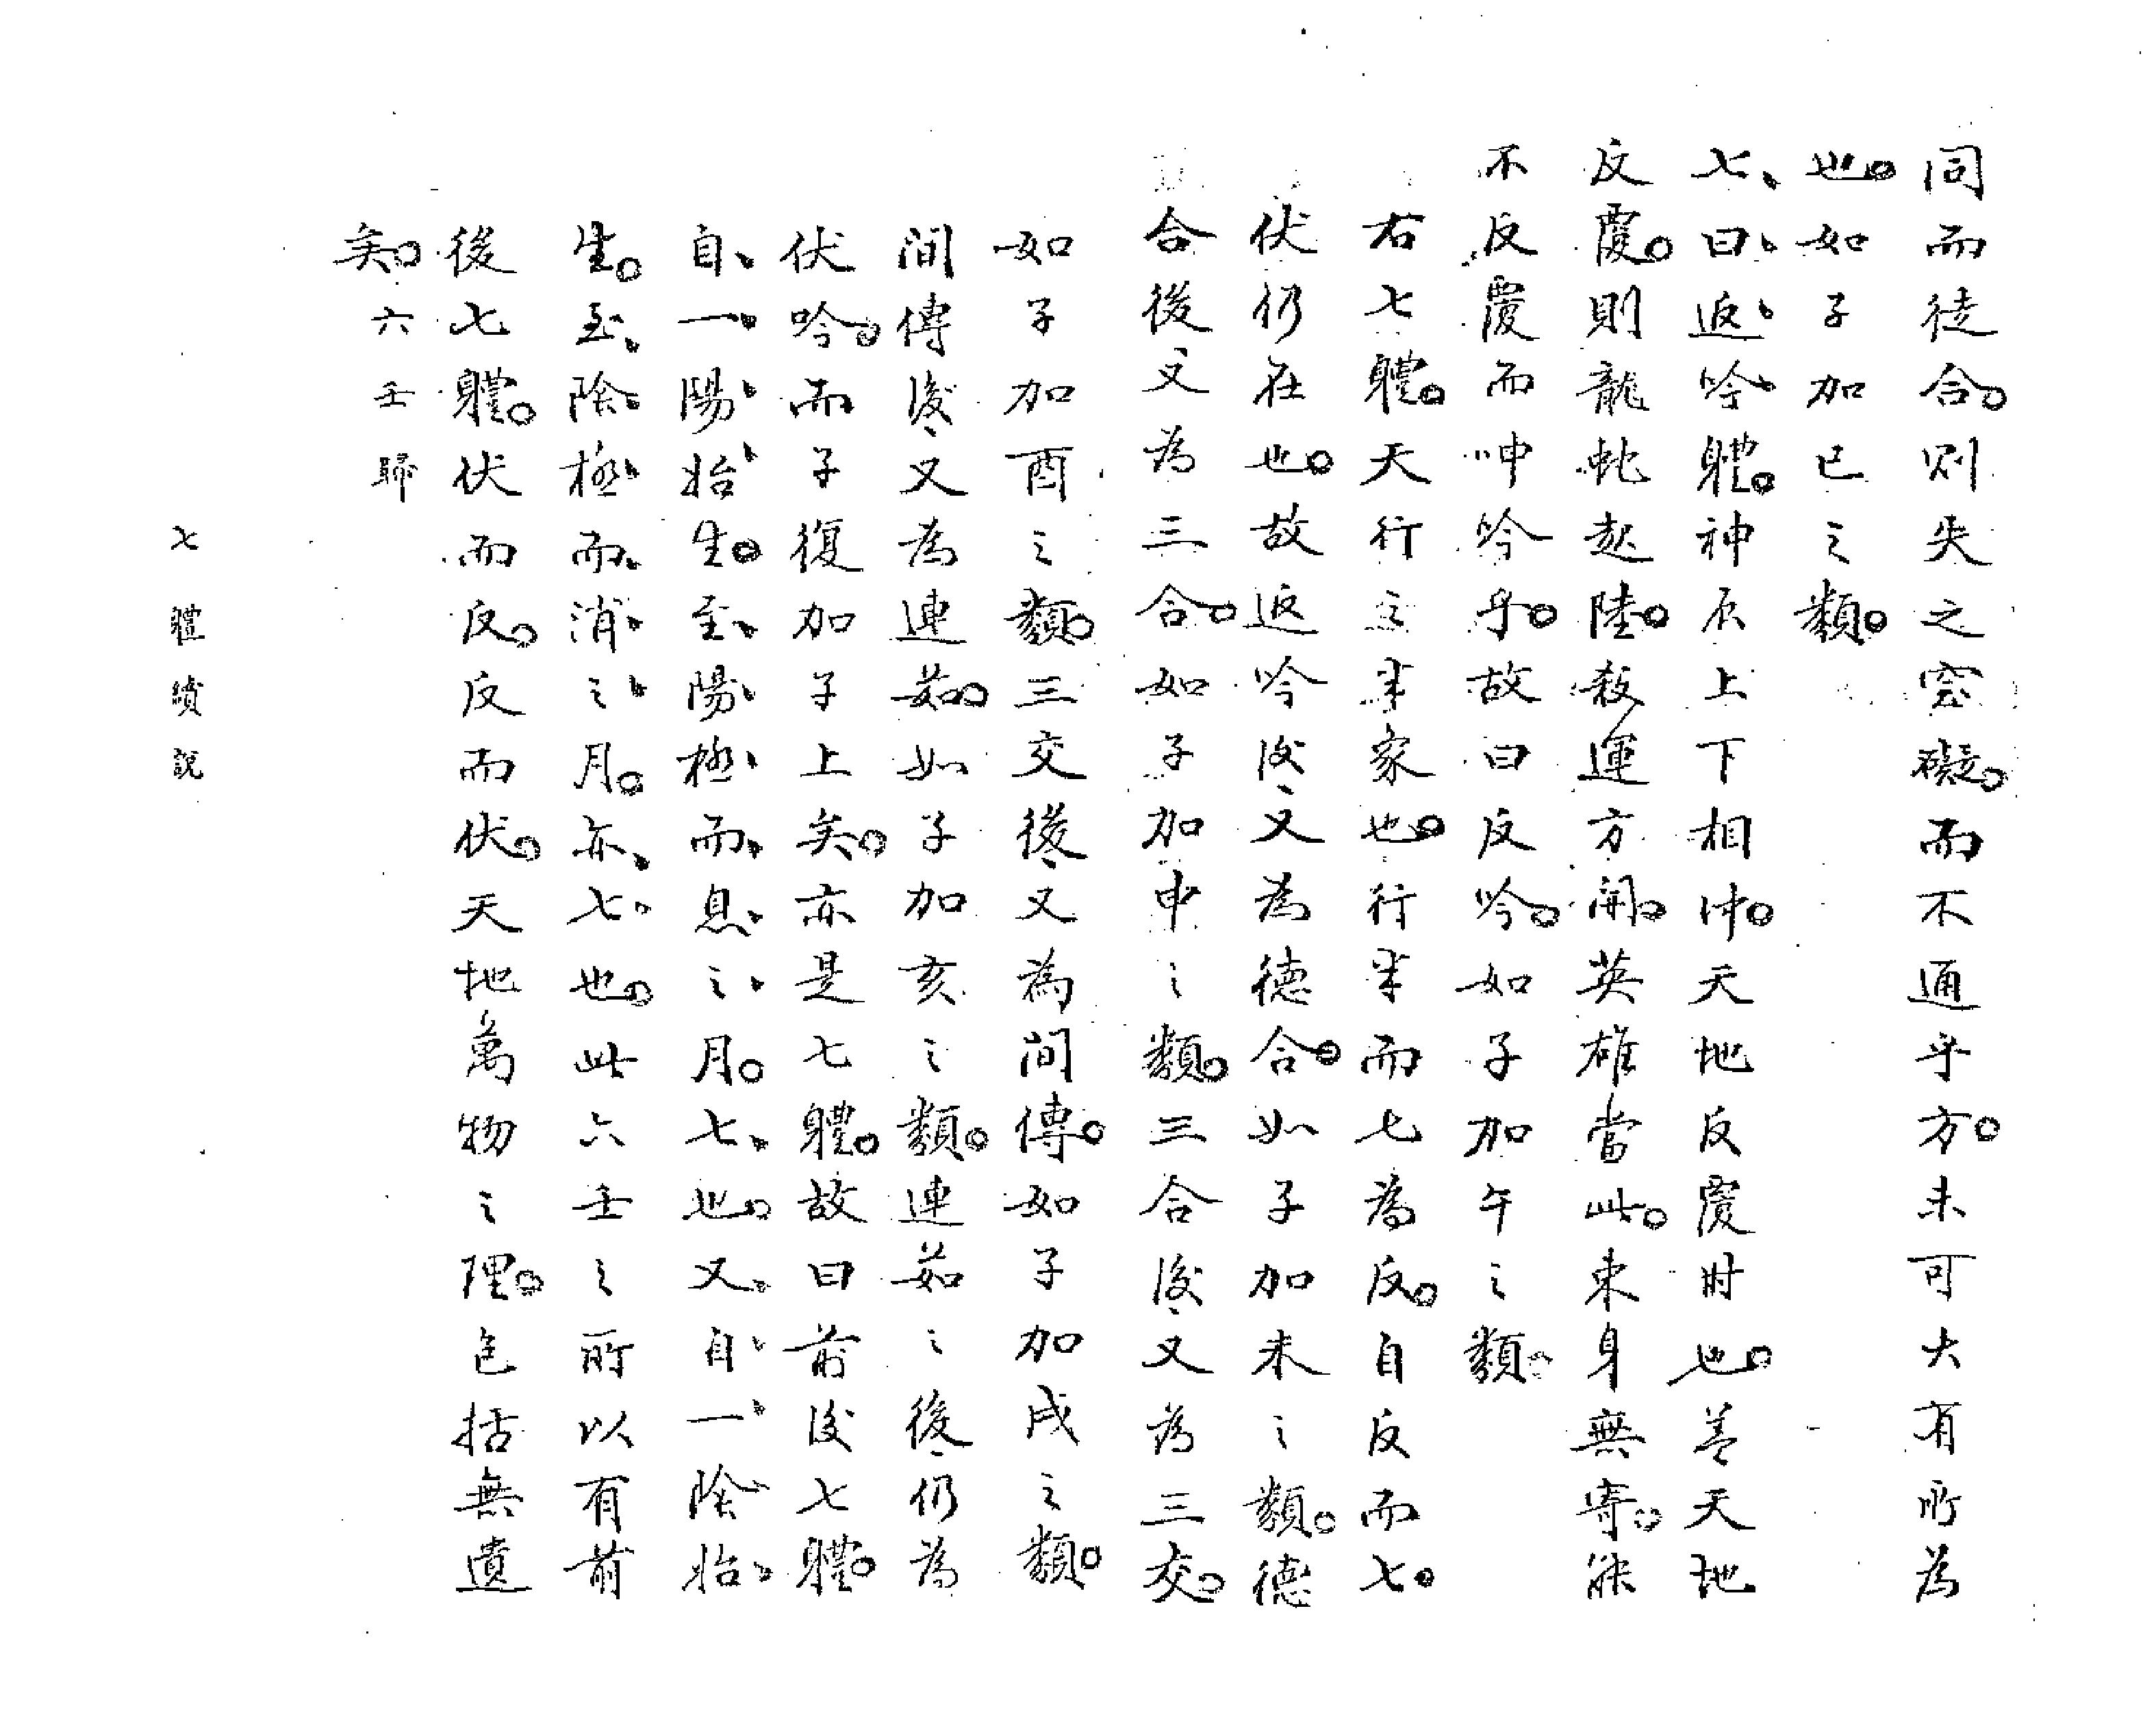 同而徒合。則失之窒礙。而不通乎方。未可大有所為
也。如子加巳之類。
七、曰、返、吟、體。神辰上下相冲。天地反覆时也。盖天地
反覆。則龍虵起陸。殺運方開。英雄當此。束身無寄。能
不反覆而呻吟乎。故曰反吟。如子加午之類。
右七體。天行之半家也。行半而七為反。自反而七。
伏仍在也。故返吟後又為德合。如子加未之類。德
合後又為三合。如子加申之類。三合後又為三交。
如子加酉之類。三交後又為間傳。如子加戌之類。
間傳後又為連茹。如子加亥之類。連茹之後仍為
伏吟。而子復加子上矣。亦是七體。故曰前後七體。
自、一、陽、始、生。至、陽、極、而、息、之、月。七、也。又、自、一、陰、始、
生。至、陰、極、而、消、之、月。亦、七、也。此六壬之所以有前
後七體。伏而反。反而伏。天地萬物之理。包括無遺
矣。六壬歸
七體續說